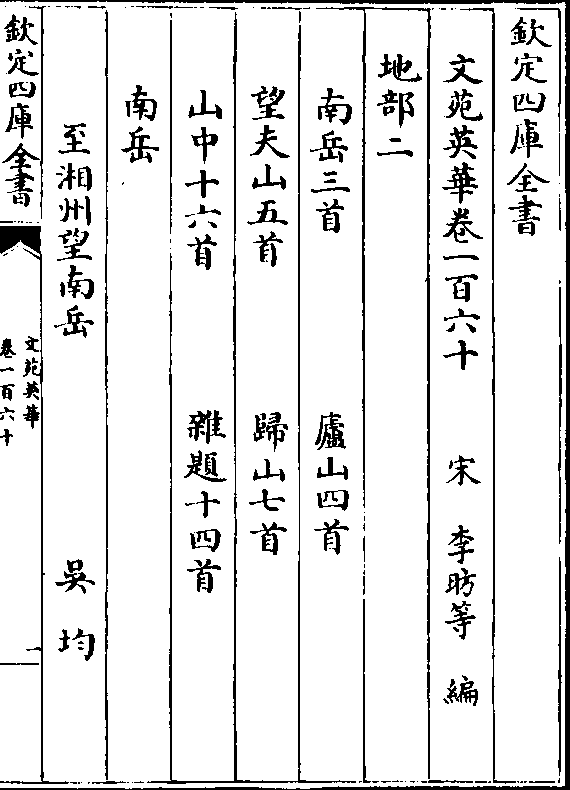 欽定四庫全書
文苑英華卷一百六十 宋 李昉等 編
地部二
南岳三首 廬山四首
望夫山五首 歸山七首
山中十六首 雜題十四首
南岳
至湘州望南岳 吳均
欽定四庫全書
文苑英華
卷一百六十
一